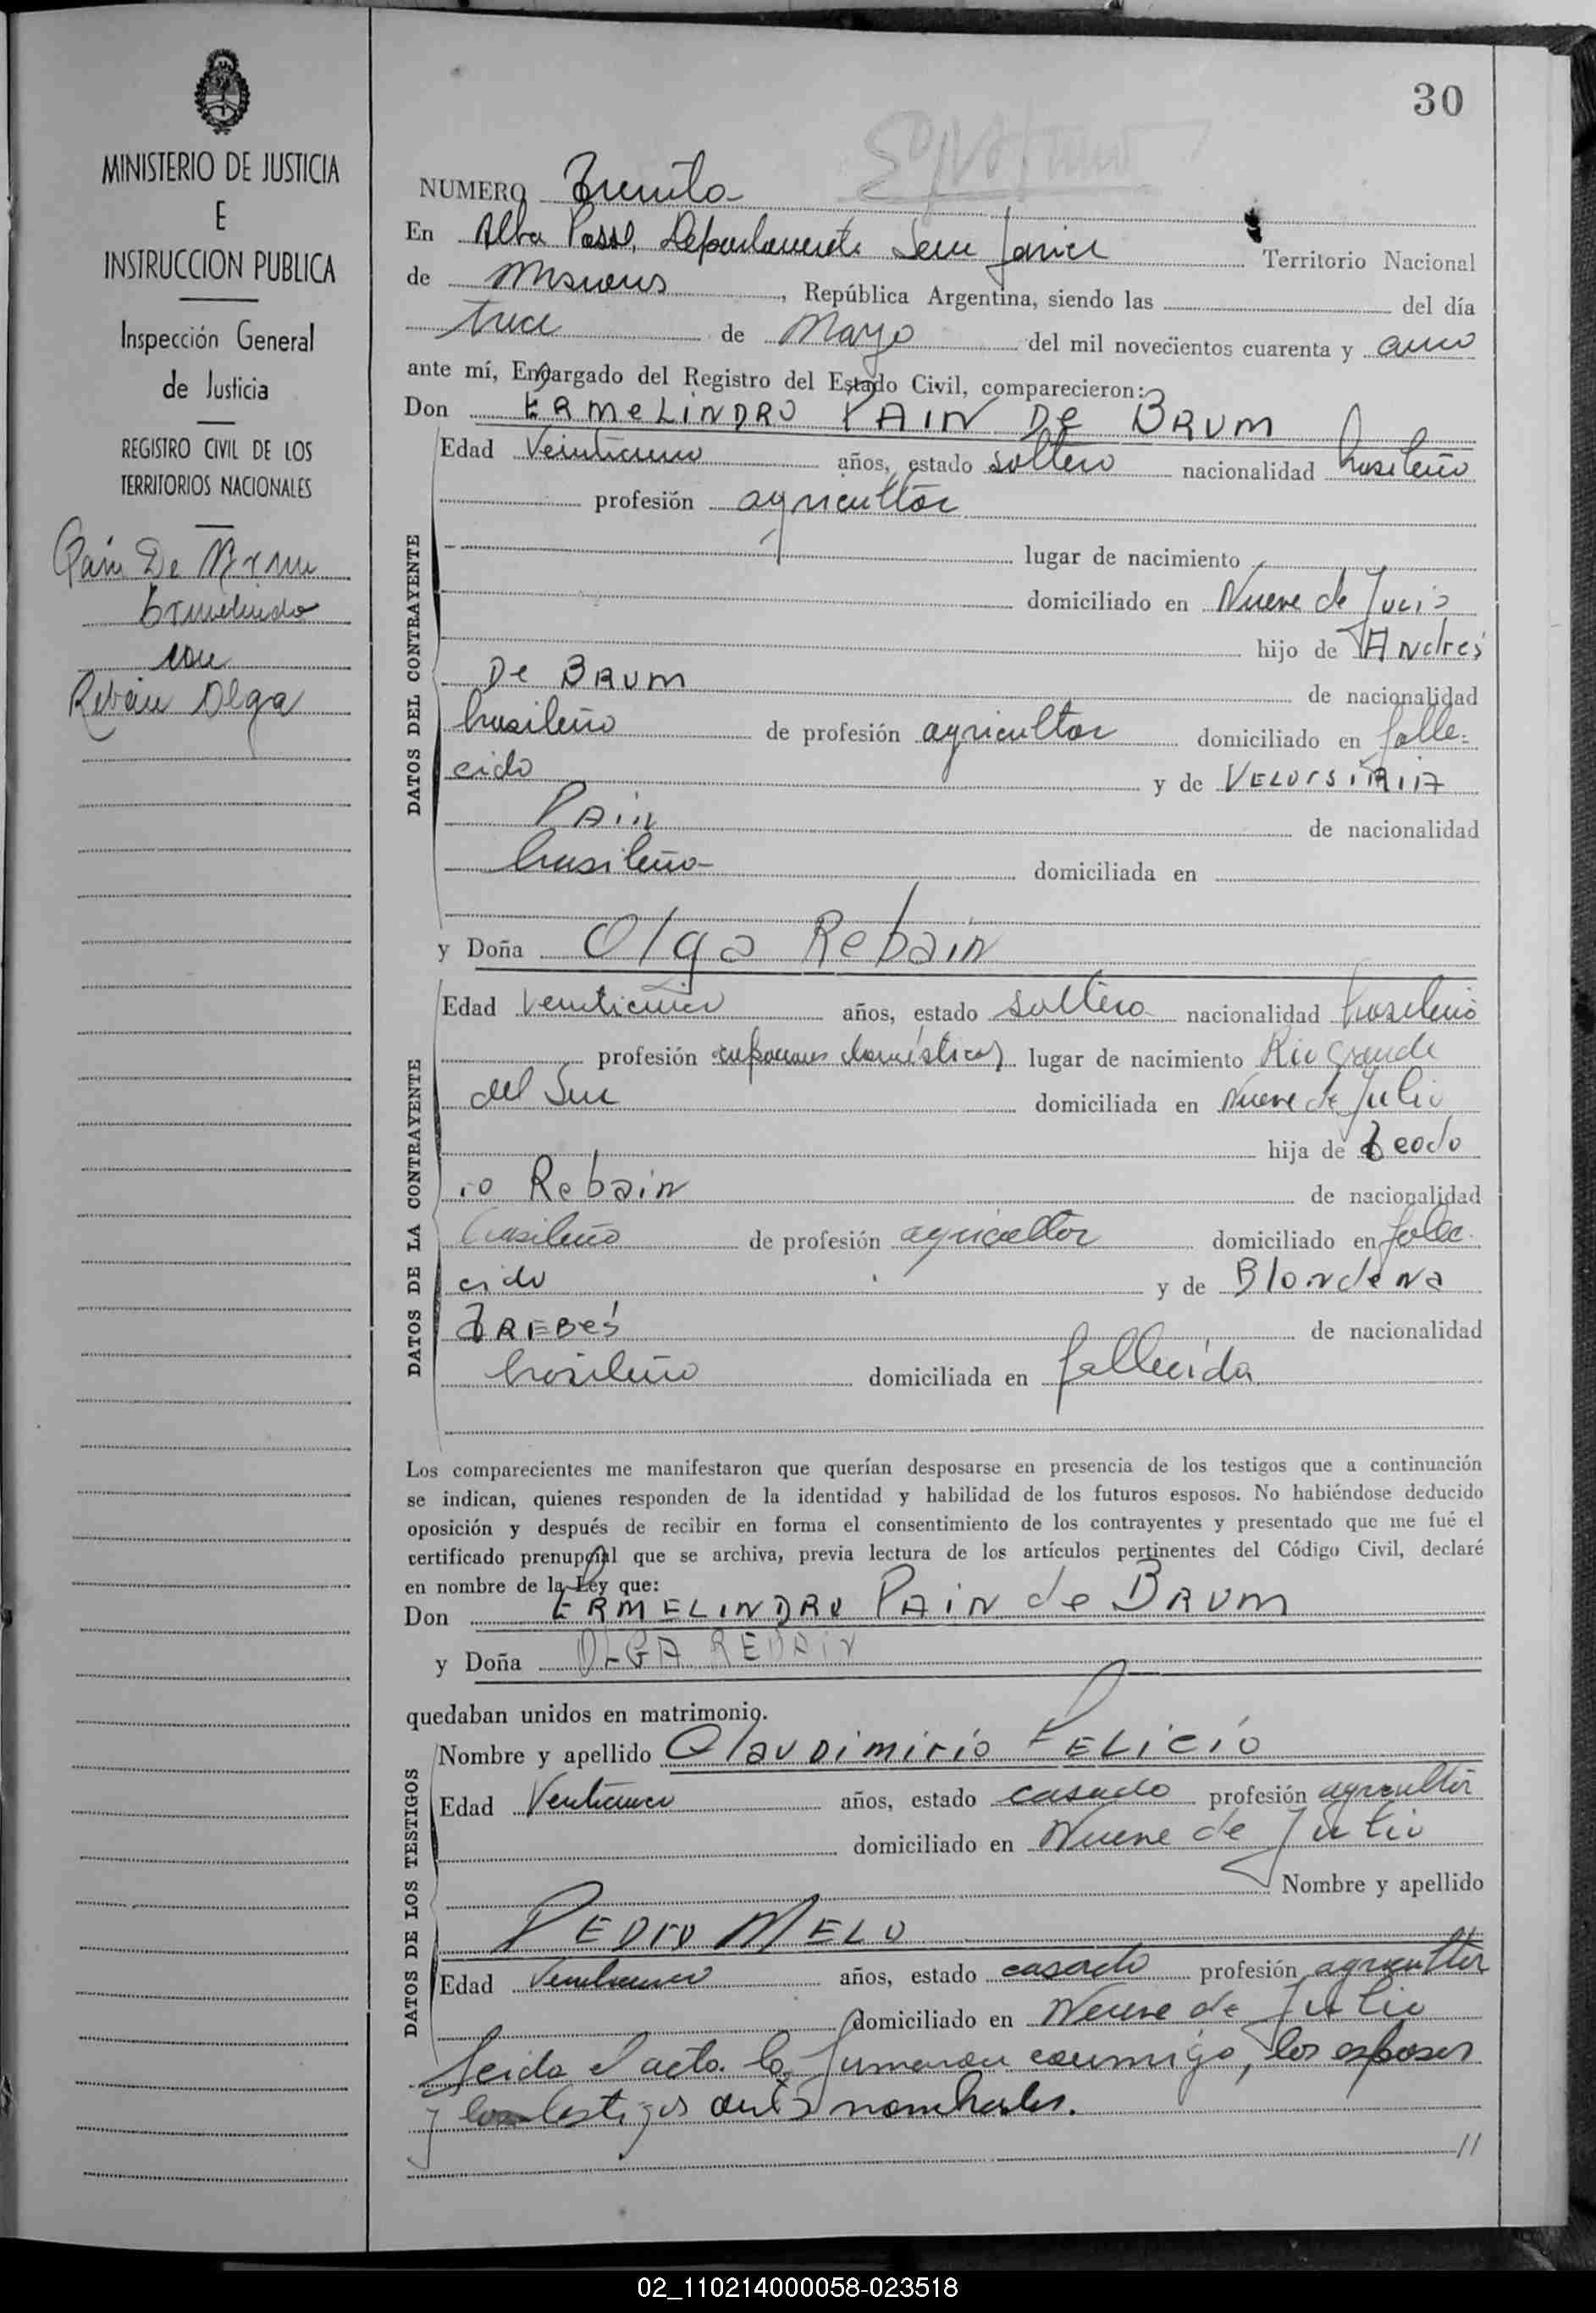 30
MINISTERIO DE JUSTICIA
E
INSTRUCCION PUBLICA
Inspección General
de Justicia
REGISTRO CIVIL DE LOS
TERRITORIOS NACIONALES
Pain De Brum
Ermelindro
con
Rebain Olga
NUMERO Treinta
En Alba Posse, Departamento San Javier Territorio Nacional
de Misiones, República Argentina, siendo las del día
trece de Mayo del mil novecientos cuarenta y
ante mí, Encargado del Registro del Estado Civil, comparecieron:
Don ERMELINDRO PAIN De BRUM
DATOS DEL CONTRAYENTE
Edad años, estado soltero nacionalidad brasileño
profesión agricultor
lugar de nacimiento
domiciliado en Nueve de Julio
hijo de Andrés
De BRUM de nacionalidad
brasileño de profesión agricultor domiciliado en falle-
cido y de
PAiN de nacionalidad
brasileño domiciliada en
y Doña Olga Rebain
DATOS DE LA CONTRAYENTE
Edad años, estado soltera nacionalidad brasileño
profesión domésticos lugar de nacimiento Rio Grande
del Sur domiciliada en Nueve de Julio
hija de Teodo
io Rebain de nacionalidad
brasileño de profesión agricultor domiciliado en falle-
cido y de Blondena
TREBES de nacionalidad
brasileño domiciliada en fallecida
Los comparecientes me manifestaron que querían desposarse en presencia de los testigos que a continuación
se indican, quienes responden de la identidad y habilidad de los futuros esposos. No habiéndose deducido
oposición y después de recibir en forma el consentimiento de los contrayentes y presentado que me fué el
certificado prenupcial que se archiva, previa lectura de los artículos pertinentes del Código Civil, declaré
en nombre de la Ley que:
Don ERMELINDRO PAiN de BRUM
y Doña OLGA REBAIN
quedaban unidos en matrimonio.
DATOS DE LOS TESTIGOS
Nombre y apellido Claudimirio FELiCiO
Edad años, estado casado profesión agricultor
domiciliado en Nueve de Julio
Nombre y apellido
PEDRO MELO
Edad años, estado casado profesión agricultor
domiciliado en Nueve de Julio
Leida el acta la firmaron conmigo, los esposos
y los testigos antes nombrados.
//
02_110214000058-023518